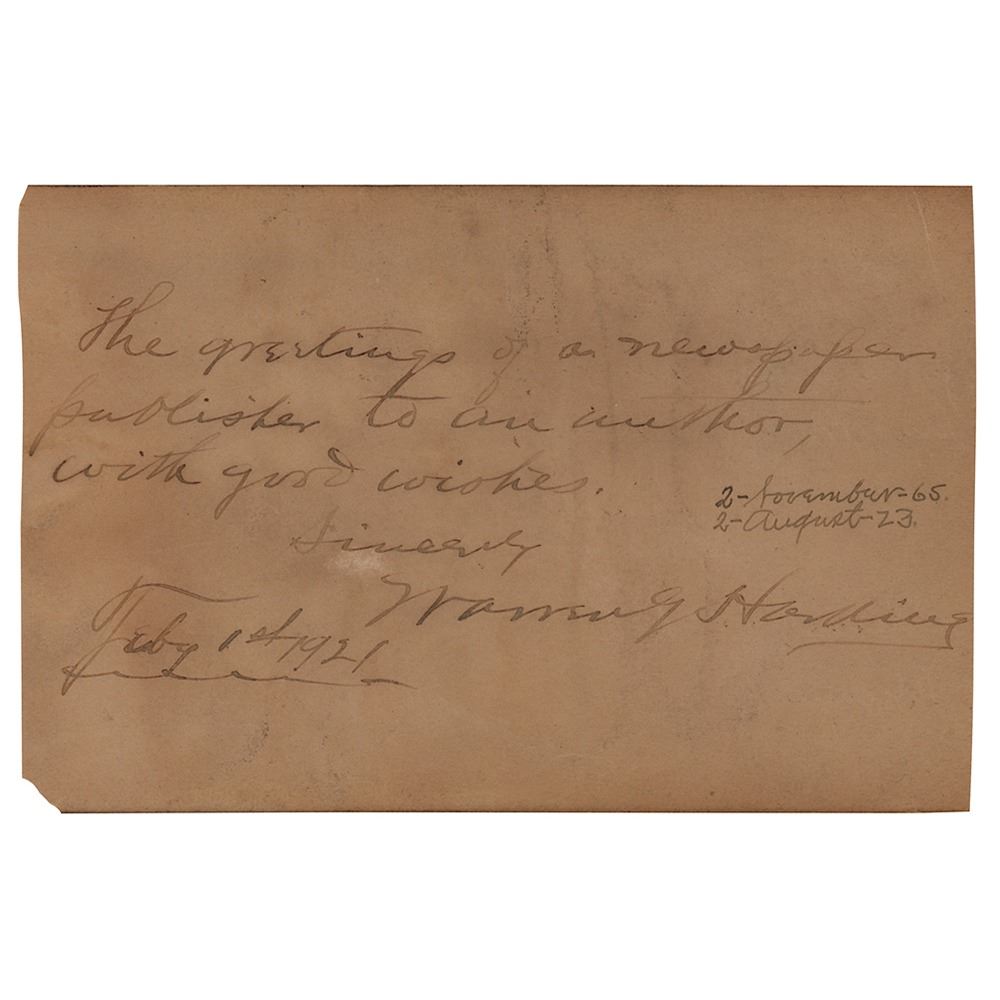 The greetings of a newspaper
publisher to an author,
with good wishes.
2-November-65.
2-August-23.
Sincerely
Warren G Harding
Feby 1st 1921